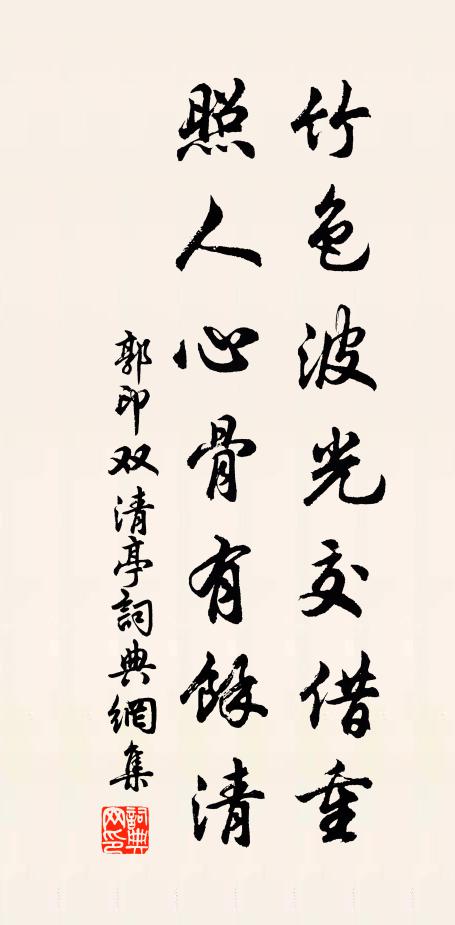 竹色波光交借重
照人心骨有餘清
郭印双清亭詞典網集
詞典网印